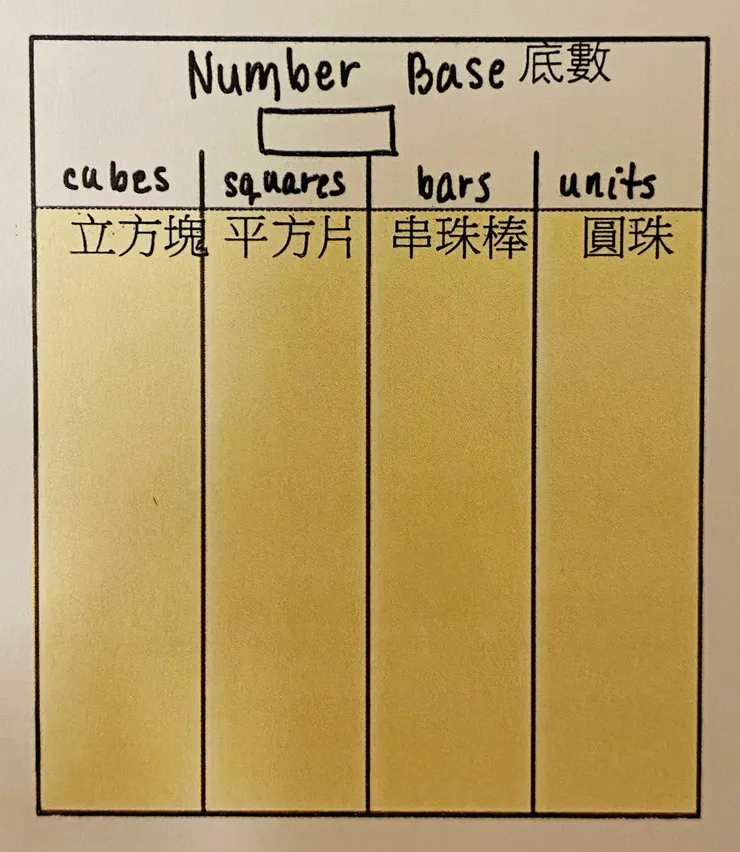 Number Base 底數
cubes squares bars units
立方塊 平方片 串珠棒 圓珠